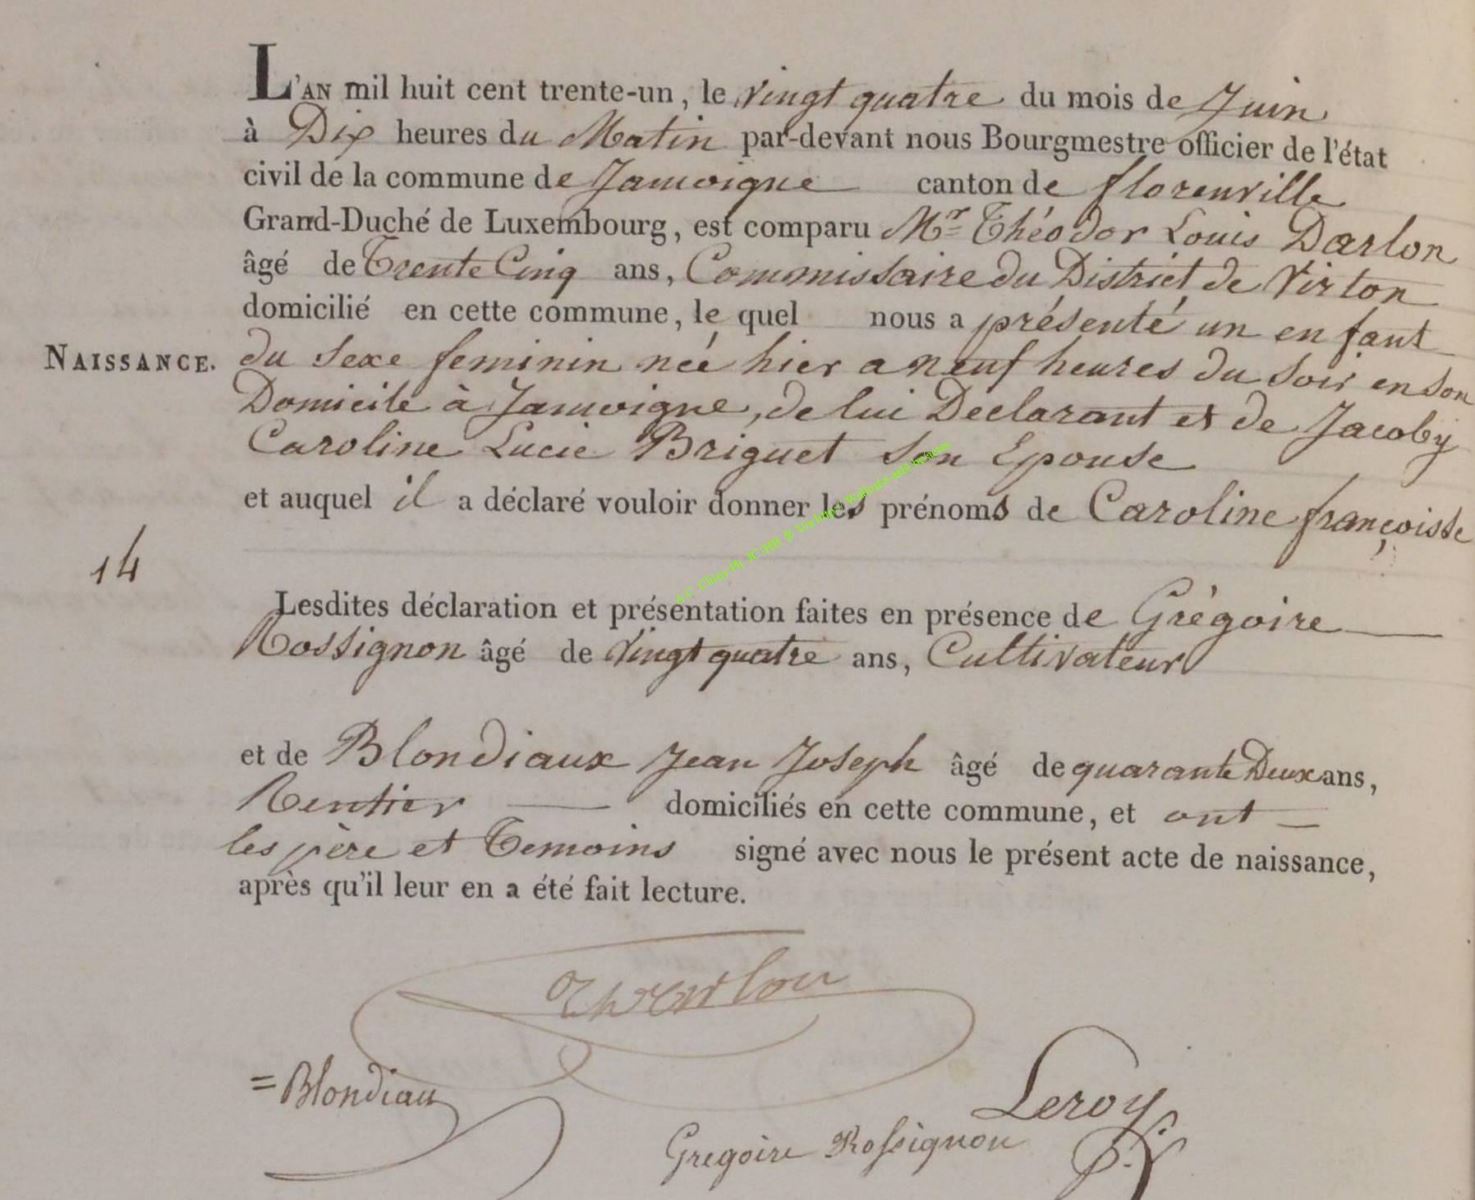 L'AN mil huit cent trente-un, le vingt quatre du mois de Juin
à Dix heures du Matin par-devant nous Bourgmestre officier de l'état
civil de la commune de Jamoigne canton de florenville
Grand-Duché de Luxembourg, est comparu Mr Théodor Louis Darlon
âgé de Trente Cinq ans, Commissaire du District de Virton
domicilié en cette commune, le quel nous a présenté un enfant
NAISSANCE. du sexe feminin née hier a neuf heures du soir en son
Domicile à Jamoigne, de lui Déclarant et de Jacoby
Caroline Lucie Briguet son Epouse
et auquel il a déclaré vouloir donner les prénoms de Caroline françoisse
14
Lesdites déclaration et présentation faites en présence de Grégoire
Rossignon âgé de vingt quatre ans, Cultivateur
et de Blondiaux Jean Joseph âgé de quarante Deux ans,
Rentier domiciliés en cette commune, et ont
les père et Temoins signé avec nous le présent acte de naissance,
après qu'il leur en a été fait lecture.
=Blondiau
Leroy
Gregoire Rossignon